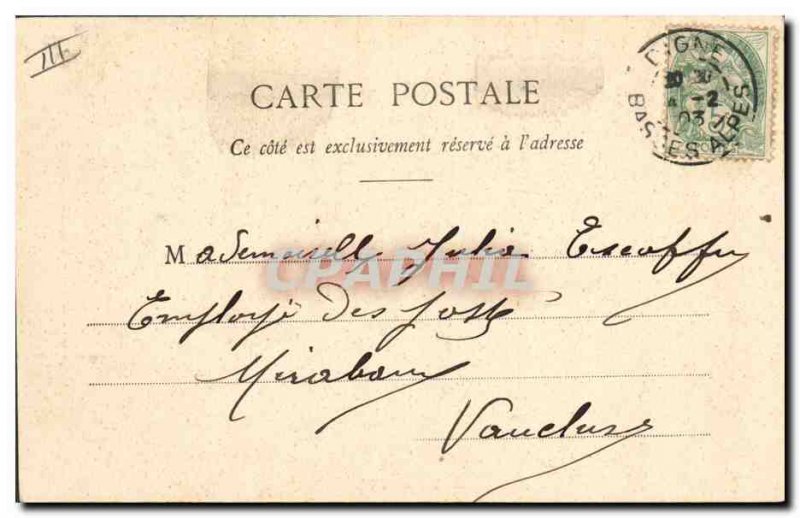 DIGNE
20 30
4 -2
03
BASSES ALPES
CARTE POSTALE
Ce côté est exclusivement réservé à l'adresse
Mademoiselle Julia Escoffier
Employé des Postes
Mirabeau
Vaucluse
CPAPHIL